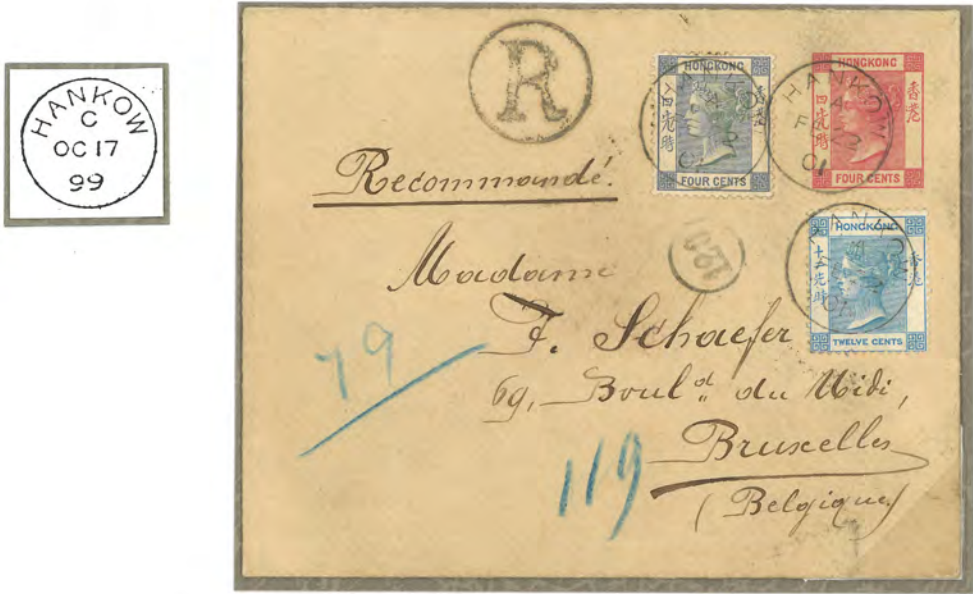 HANKOW
C
OC 17
99
R
HONGKONG
四先時
FOUR CENTS
HONGKONG
香港
四先時
FOUR CENTS
HANKOW
A
01
Recommandé.
HONGKONG
香港
TWELVE CENTS
HANKOW
Madame
F. Schaefer
69, Boul.d du Midi,
Bruxelles
(Belgique)
79
119